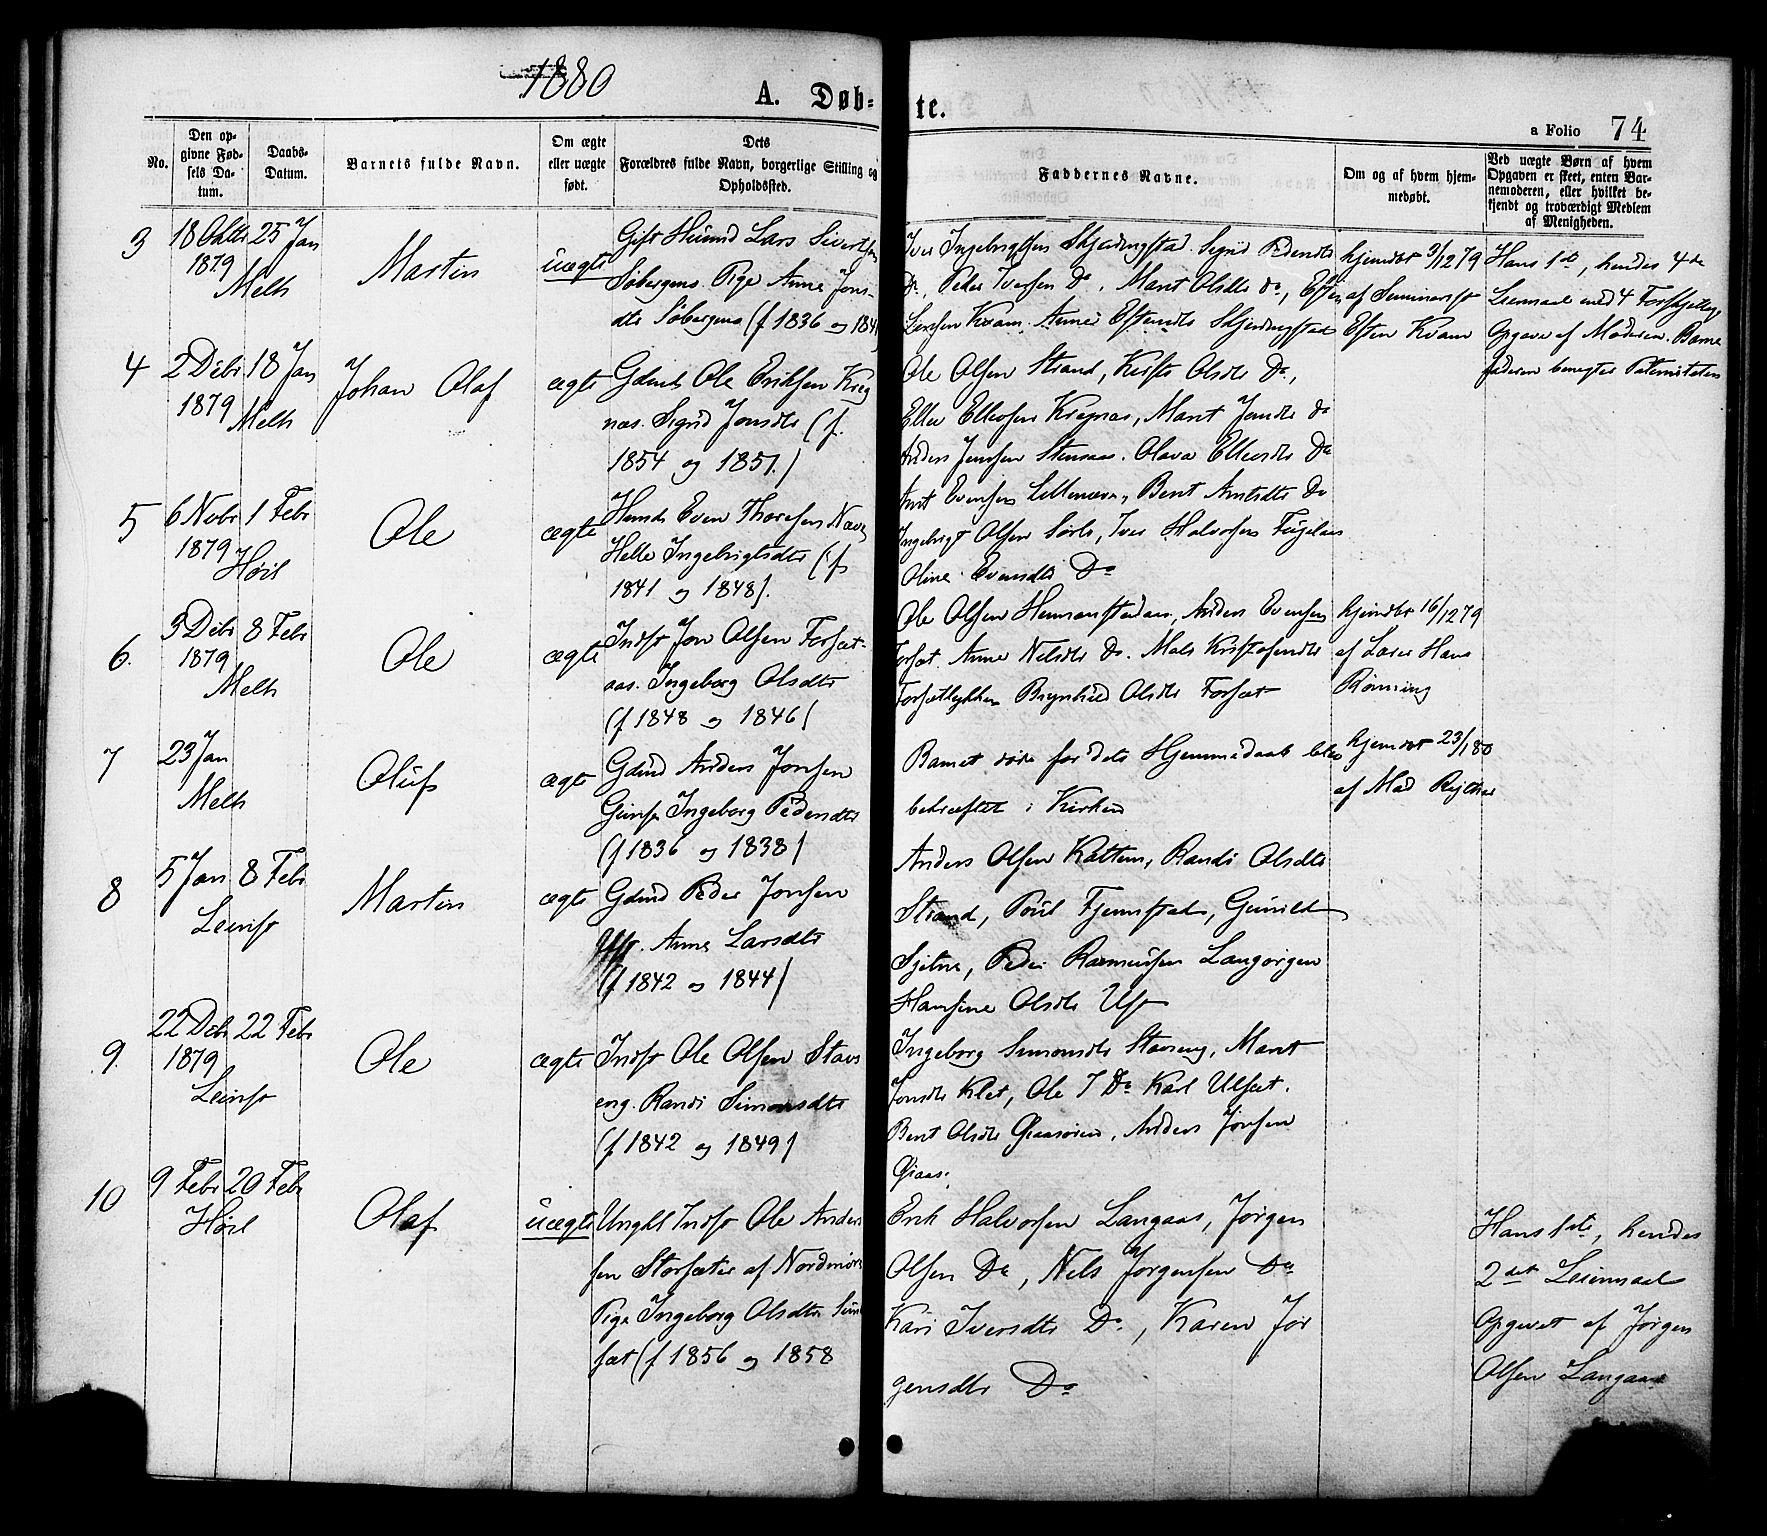 1880
A. Døb-
te.
a Folio 74
No.
Den op-
givne Fød-
sels Da-
tum.
Daabs-
Datum.
Barnets fulde Navn.
Om ægte
eller uægte
født.
Dets
Forældres fulde Navn, borgerlige Stilling og
Opholdssted.
Faddernes Navne.
Om og af hvem hjem-
medøbt.
Ved uægte Børn af hvem
Opgaven er skeet, enten Bar-
nemoderen, eller hvilket be-
kjendt og troværdigt Medlem
af Menigheden.
3
18 Oktbr 25 Jan
1879
Melh
Martin
uægte
Gift Huusmd Lars Sivertsen
Søbergens. Pige Anne Jons-
dtr Søbergens (f 1836 og 184
Iver Ingebrigtsen Skjerdingstad. Sigrid Pedersdtr
Do, Peder Iversen Do, Marit Olsdtr do, Esten
Larssen Kvam. Anne Estensdtr Skjerdingstad
hjemdøbt 3/12 79
af Seminarist
Esten Kvam
Hans 1ste, hendes 4de
Leiermaal med 4 Forskjellige
Opgave af Moderen. Barne
faderen benegter Paterniteten
4
2 Debr 18 Jan
1879
Melh
Johan Olaf
ægte
Gdmd Ole Eriksen Kreg
næs. Sigrid Jonsdtr (f.
1854 og 1857.)
Ole Olsen Strand, Kirsti Olsdtr Do,
Ellev Ellevsen Kregnæs, Marit Jonsdtr do
Anders Jensen Stensaas. Olava Ellevsdtr Do
5
6 Nobr 1 Febr
1879
Høil
Ole
ægte
Husmd Even Thoresen Næve
Helle Ingebrigtsdtr (f
1841 og 1848).
Arnt Evensen Lillenæve, Berit Arntsdtr Do
Ingebrigt Olsen Sørli, Iver Halvorsen Fuglaas
Oline Evensdtr Do
6.
3 Debr 8 Febr
1879
Melh
Ole
ægte
Indst Jon Olsen Forsæt-
aas. Ingeborg Olsdtr
(f 1848 og 1846)
Ole Olsen Hermanstadaas, Anders Evensen
Forsæt. Anne Nilsdtr Do. Malı Kristofersdtr
Forsætlykken Brynhild Olsdtr Forsæt
hjemdøbt 16/12 79
af Lærer Hans
Rønning
7
23 Jan
Melh
Oluf
ægte
Gdmd Anders Jonsen
Gimse Ingeborg Pedersdtr
(f 1836 og 1838)
Barnet døde før dets Hjemmedaab blev
bekræftet i Kirken
hjemdøbt 23/1 80
af Mad
8
5 Jan 8 Febr
Leinst
Martin
ægte
Gdmd Peder Jonsen
Ust. Anne Larsdtr
(f 1842 og 1844)
Anders Olsen Kattem, Randi Olsdtr
Strand, Poul Fjemstad, Gunild
Sjetne, Peder Rasmussen Langørgen
Hansine Olsdtr Ust
9.
22 Debr 22 Febr
1879
Leinst
Ole
ægte
Indst Ole Olsen Stavs
eng. Randi Simonsdtr
(f 1842 og 1849)
Ingeborg Simonsdtr Stavseng, Marit
Jonsdtr Klet, Ole J Do Karl Ulsæt.
Berit Olsdtr Graaøren, Anders Jonsen
Graaø.
10
9 Febr 20 Febr
Høil
Olaf
uægte
Ungkl Indst Ole Anders
sen Storsæter af Nordmøre
Pige Ingeborg Olsdtr
sæt (f 1856 og 1858
Erik Halvorsen Langaas, Jørgen
Olsen Do, Nils Jørgensen Do
Kari Iversdtr Do, Karen Jør
gensdtr Do
Hans 1ste, hendes
2det Leiermaal
Opgivet af Jørgen
Olsen Langaas